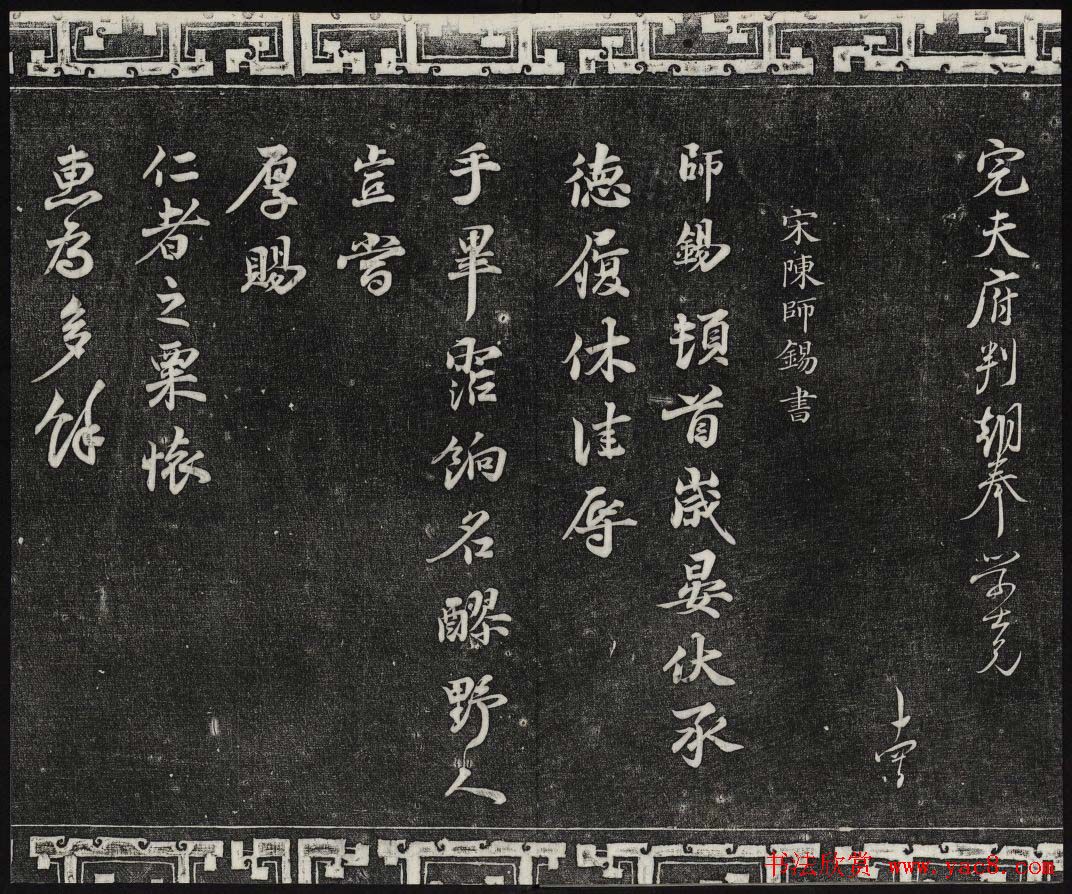 完夫府判朝奉學士兄
宋陳師錫書
師錫頓首歲晏伏承
德履休佳辱
手畢寵餉名醪野人
豈當
厚賜
仁者之粟懷
惠為多餘
书法欣赏 www.yac8.com